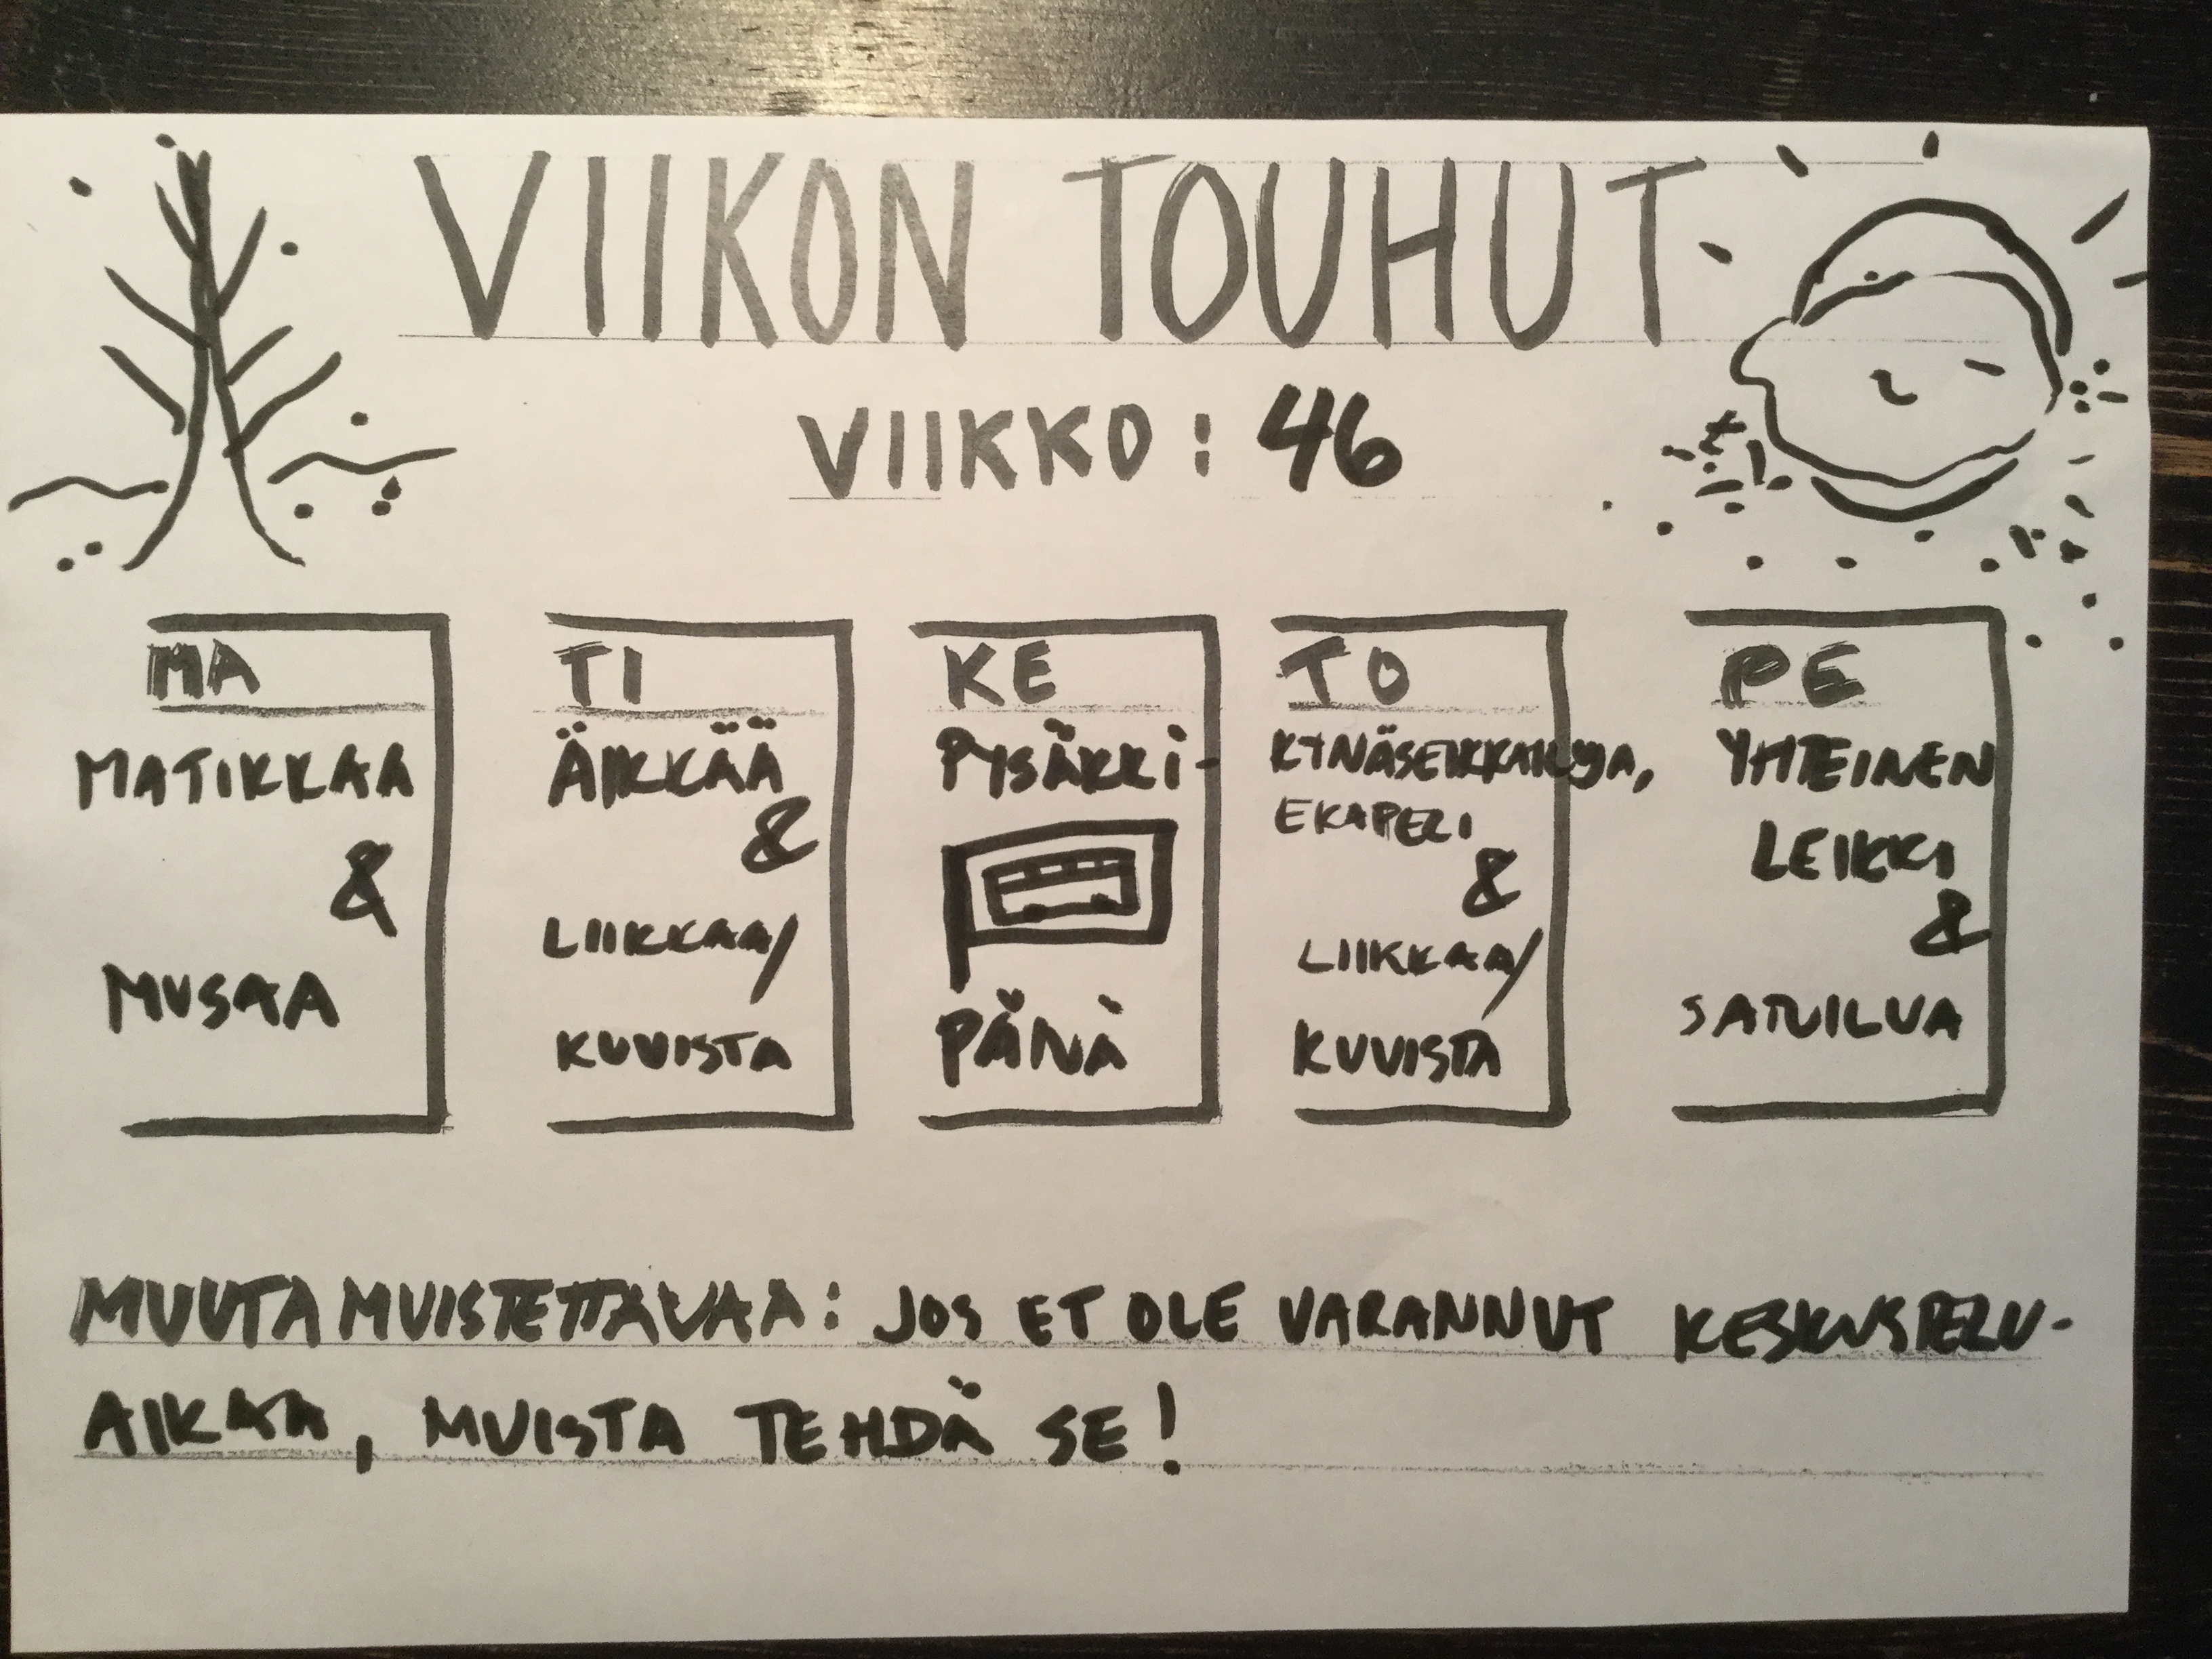 VIIKON TOUHUT
VIIKKO: 46
MA
MATIKKAA
&
MUSAA
TI
ÄIKKÄÄ
&
LIIKKAA/
KUVISTA
KE
PYSÄKKI-
PÄIVÄ
TO
KYNÄSEIKKAILUJA,
EKAPELI
&
LIIKKAA/
KUVISTA
PE
YHTEINEN
LEIKKI
&
SATUILUA
MUUTA MUISTETTAVAA: JOS ET OLE VARANNUT KESKUSTELU-
AIKAA, MUISTA TEHDÄ SE!